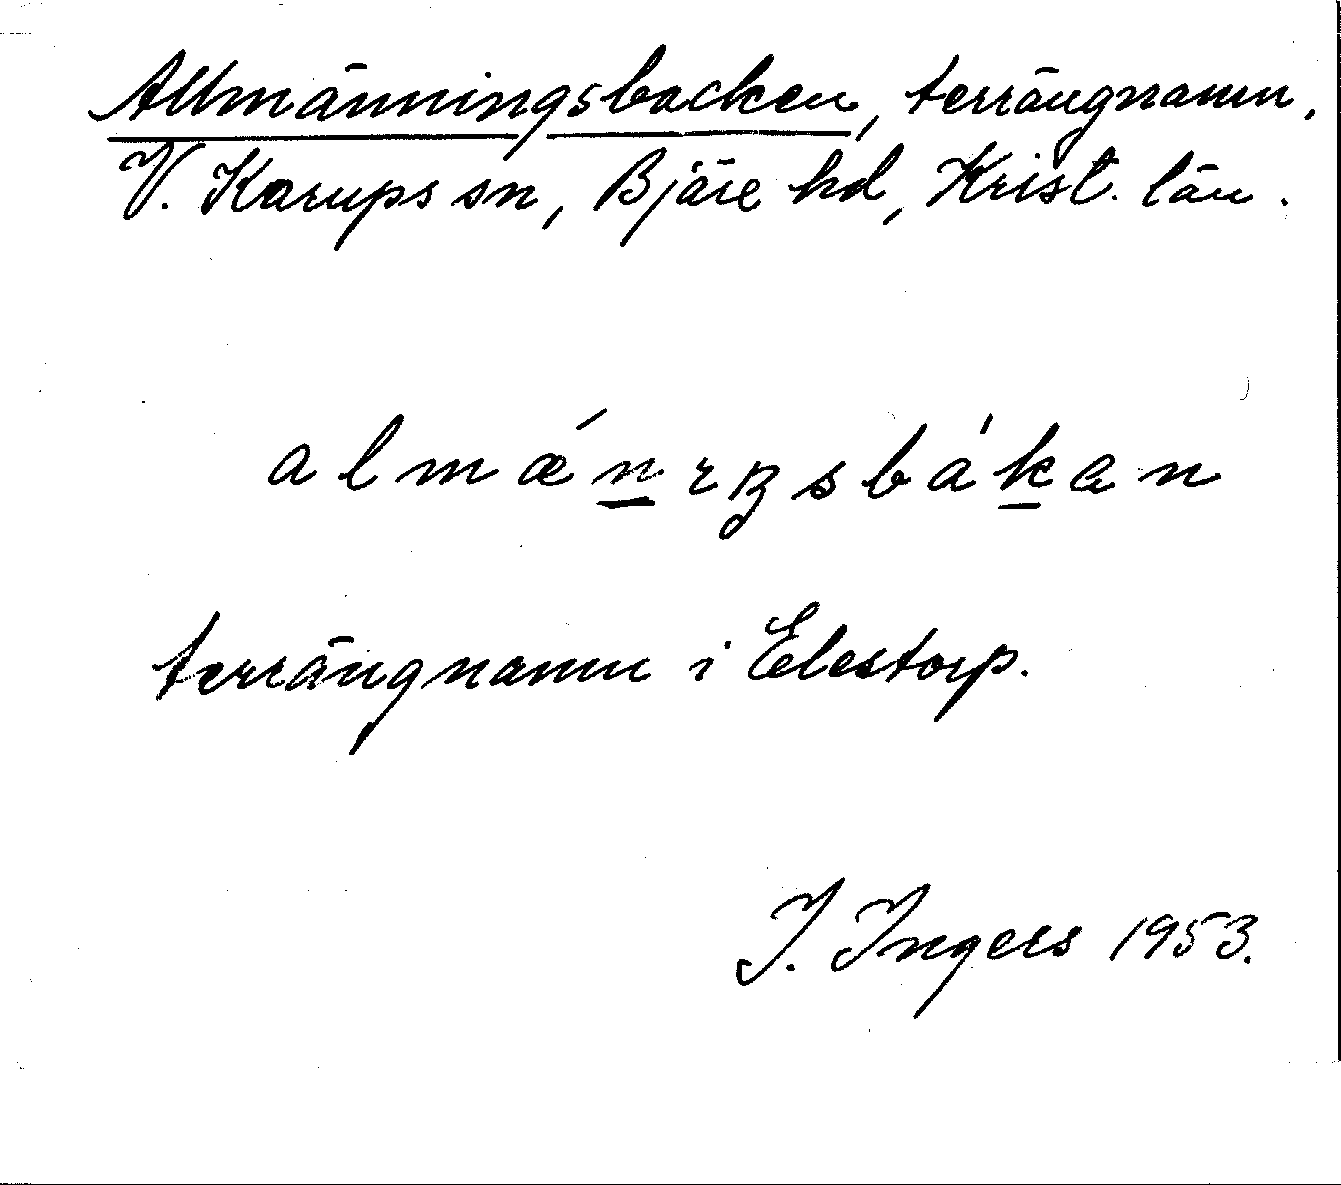 Allmänningsbacken, terrängnamn.
V. Karups sn, Bjäre hd, Krist. län.
almǽn̲ıŋsbák̲an
terrängnamn i Elestorp.
I. Ingers 1953.